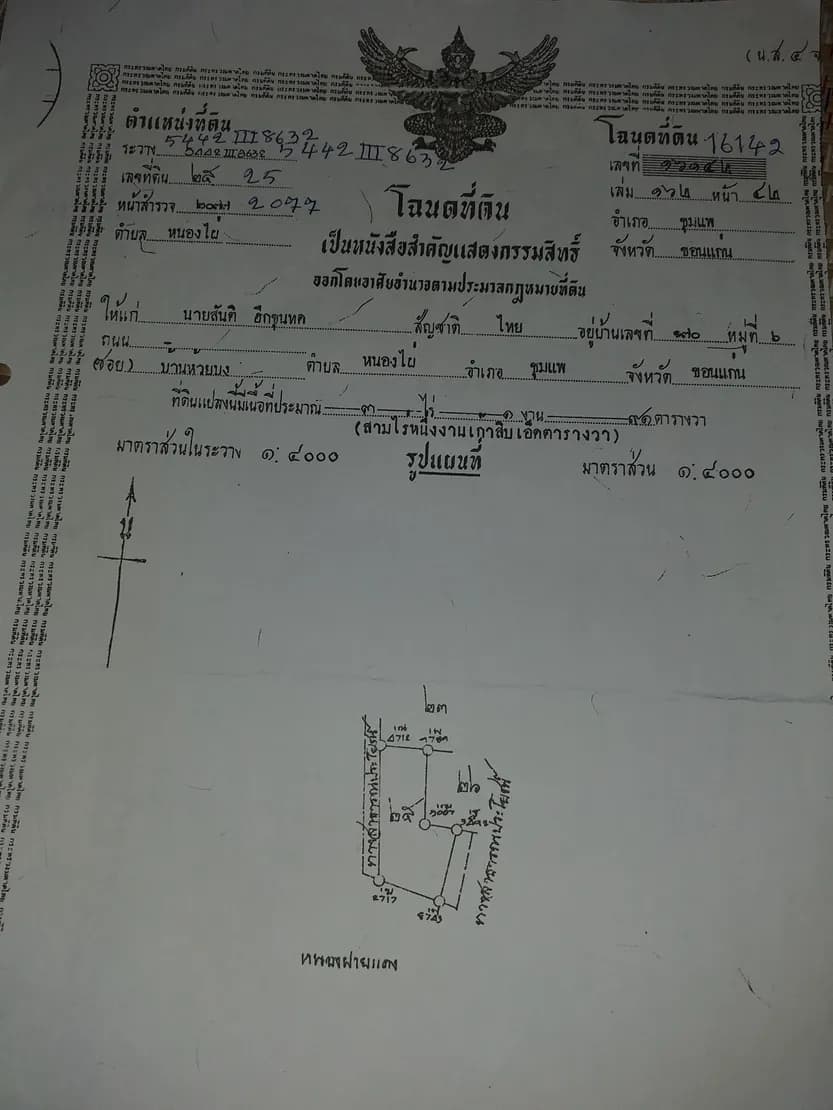 (น.ส. ๔ จ
ตำแหน่งที่ดิน
ระวาง 5442 III 8632 5442 III 8632
เลขที่ดิน ๒๕ 25
หน้าสำรวจ ๒๐๗๗ 2077
ตำบล หนองไผ่
โฉนดที่ดิน 16142
เลขที่ ๑๖๑๔๒
เล่ม ๑๖๒ หน้า ๔๒
อำเภอ ชุมแพ
จังหวัด ขอนแก่น
โฉนดที่ดิน
เป็นหนังสือสำคัญแสดงกรรมสิทธิ์
ออกโดยอาศัยอำนาจตามประมวลกฎหมายที่ดิน
ให้แก่ นายสันติ ฮีกขุนทด สัญชาติ ไทย อยู่บ้านเลขที่ ๑๗๐ หมู่ที่ ๖
ถนน
(ซอย) บ้านห้วยบง ตำบล หนองไผ่ อำเภอ ชุมแพ จังหวัด ขอนแก่น
ที่ดินแปลงนี้มีเนื้อที่ประมาณ ๓ ไร่ ๑ งาน ๙๑ ตารางวา
(สามไร่หนึ่งงานเก้าสิบเอ็ดตารางวา)
มาตราส่วนในระวาง ๑: ๔๐๐๐ รูปแผนที่ มาตราส่วน ๑: ๔๐๐๐
น
๒๓
๒๖
๒๕
ทางสาธารณประโยชน์
ทางสาธารณประโยชน์